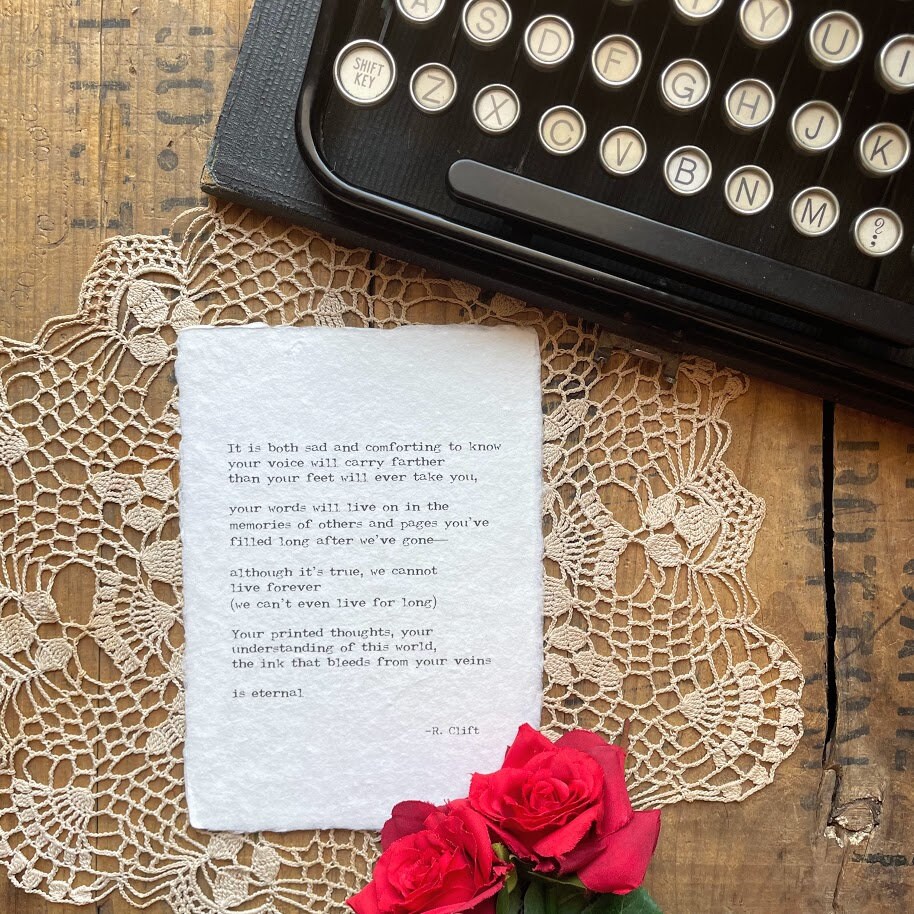 A S D F G H Y U I
SHIFT
KEY
Z X C V B N M J K ?
It is both sad and comforting to know
your voice will carry farther
than your feet will ever take you,
your words will live on in the
memories of others and pages you've
filled long after we've gone—
although it's true, we cannot
live forever
(we can't even live for long)
Your printed thoughts, your
understanding of this world,
the ink that bleeds from your veins
is eternal
-R. Clift